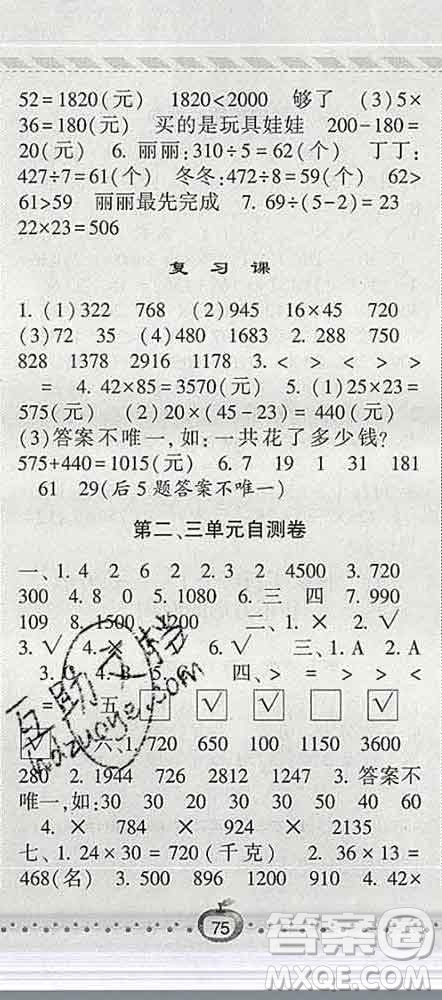 52=1820(元) 1820<2000 够了 (3)5×
36=180(元) 买的是玩具娃娃 200-180=
20(元) 6. 丽丽:310÷5=62(个) 丁丁:
427÷7=61(个) 冬冬:472÷8=59(个) 62>
61>59 丽丽最先完成 7. 69÷(5-2)=23
22×23=506
复 习 课
1. (1)322 768 (2)945 16×45 720
(3)72 35 (4)480 1683 2. 288 750
828 1378 2916 1178 3. < > < > >
= 4. 42×85=3570(元) 5. (1)25×23=
575(元) (2)20×(45-23)=440(元)
(3)答案不唯一,如:一共花了多少钱?
575+440=1015(元) 6. 7 19 1 31 181
61 29(后5题答案不唯一)
第二、三单元自测卷
一、1. 4 2 6 2 2. 3 2 4500 3. 720
300 4. 8 0 5. 1080 6. 三 四 7. 990
109 8. 1500 1200 二、1. × 2. √
3. √ 4. × 6. √ 三、1. A 2. A
3. C 4. B 5. 四、> = > <
= 五、 √ √ √
六、1. 720 650 100 1150 3600
280 2. 1944 726 2812 1247 3. 答案不
唯一,如:30 30 20 30 50 40 60
4. × 784 × 924 × 2135
七、1. 24×30=720(千克) 2. 36×13=
468(名) 3. 500 896 1200 910 4. 42×
75
互助文档
hdzuoye.com
答案圈
MXQE.COM